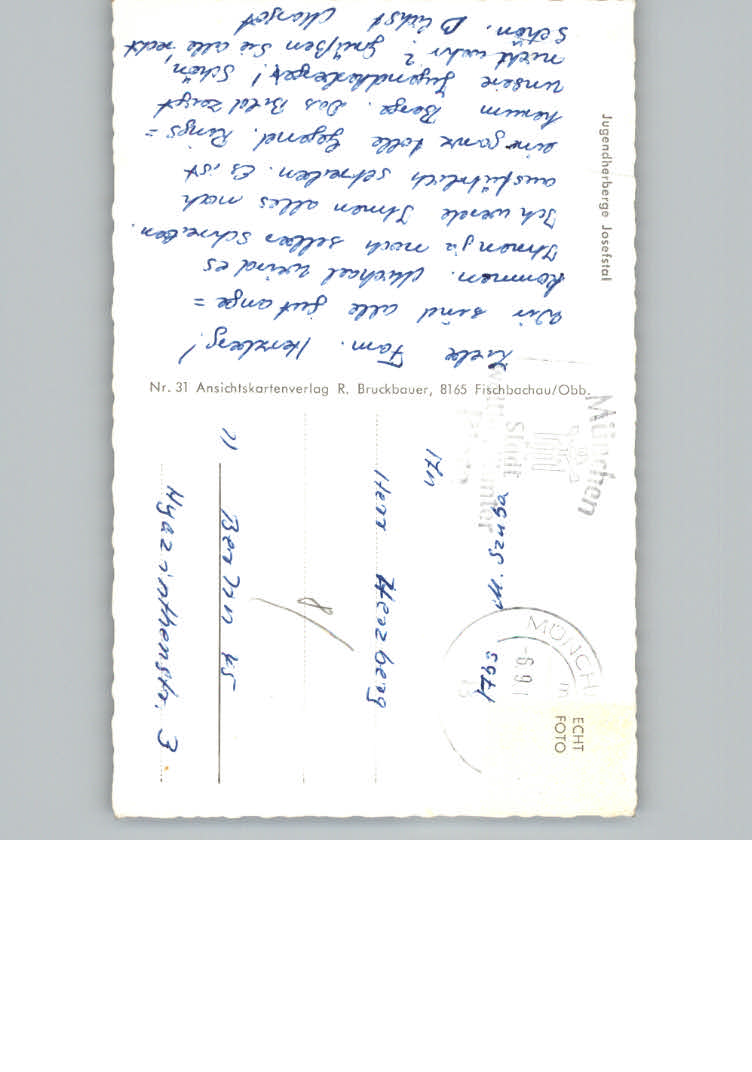 Jugendherberge Josefstal
Liebe Fam. Herzberg!
Wir sind alle gut ange=
kommen. Michael wird es
Ihnen ja noch selber schreiben.
Ich werde Ihnen alles noch
ausführlich schreiben. Es ist
eine ganz tolle Gegend. Rings=
herum Berge. Das Bild zeigt
unsere Jugendherberge! Schön,
nicht wahr? Grüßen Sie alle recht
schön. Margot
Nr. 31 Ansichtskartenverlag R. Bruckbauer, 8165 Fischbachau/Obb.
München
Stadt
MÜNCH
-6.9.
ECHT
FOTO
1763
M. Szuba
An
Herr Herzberg
8
1) Berlin 45
Hyazinthenstr. 3